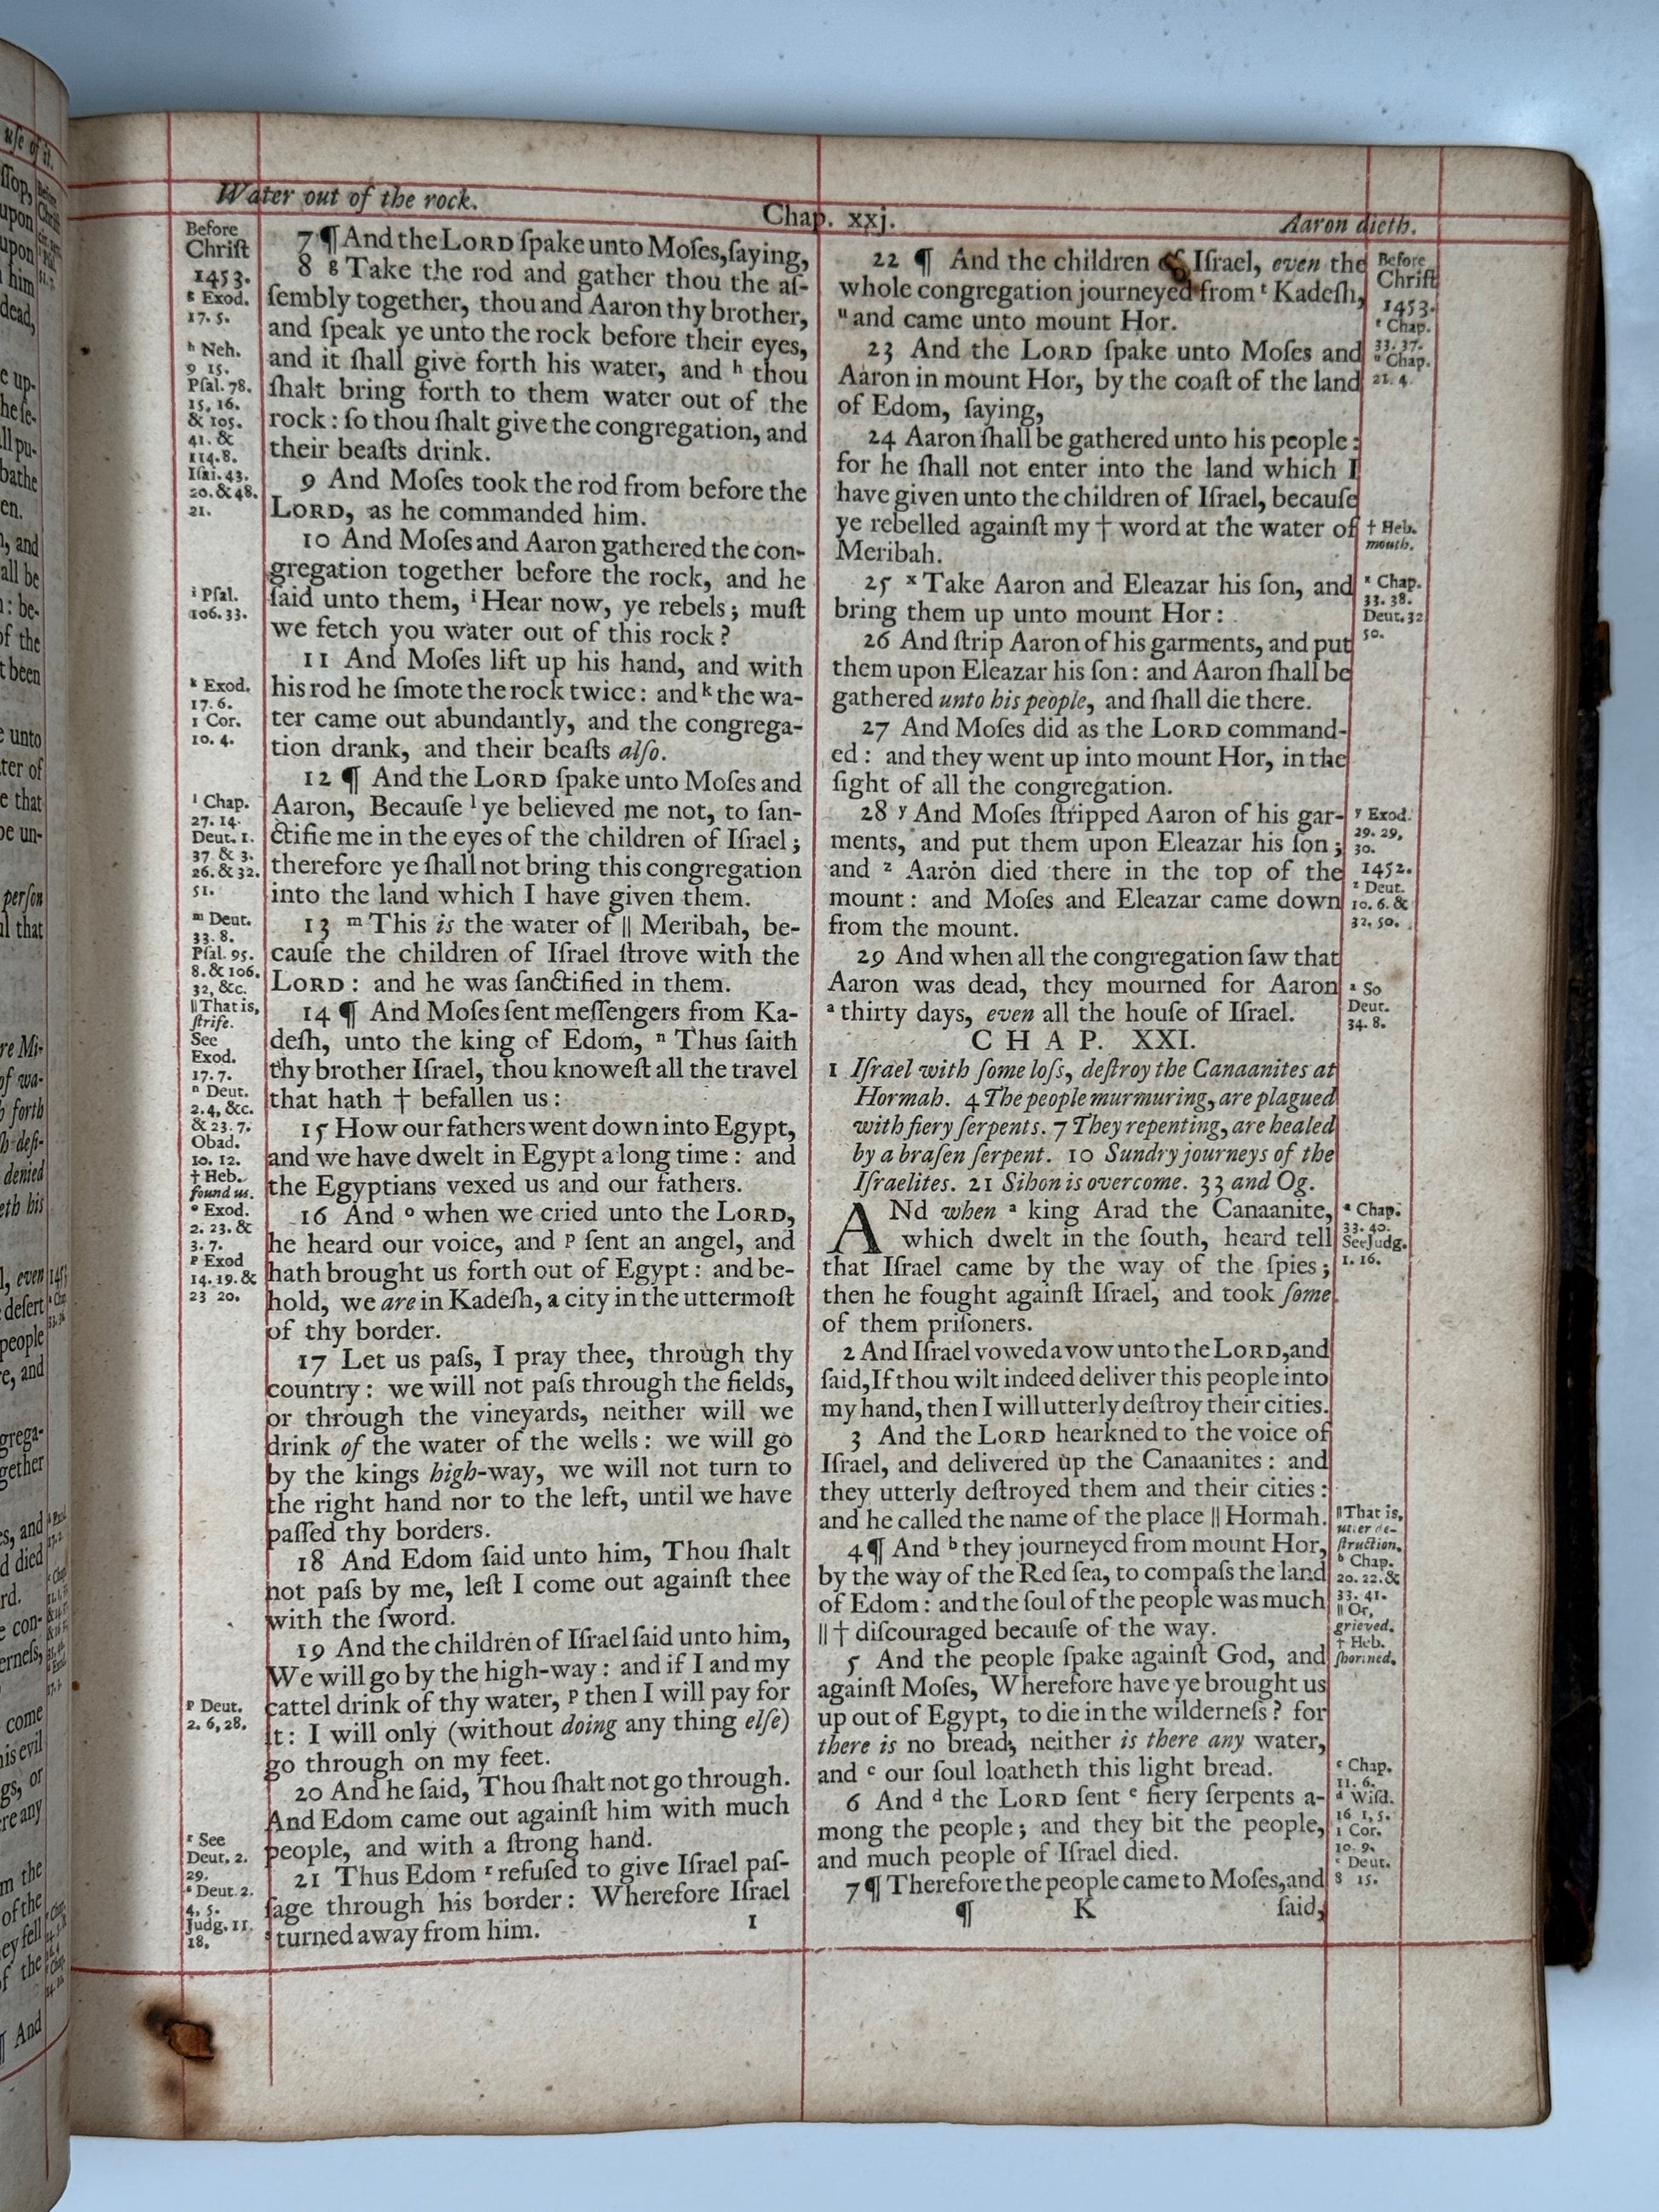 uſe of it.
upon
upon
him
dead,
bathe
en.
and
all be
of the
t been
unto
ter of
e that
perſon
that
of wa-
forth
denied
eth his
even
deſert
people
and
grega-
gether
and
died
con-
come
his evil
or
re any
of the
ey fell
the
¶ And
Water out of the rock.
Chap. xxj.
Aaron dieth.
Before
Chriſt
1453.
g Exod.
17. 5.
h Neh.
9 15.
Pſal. 78.
15, 16.
& 105.
41. &
114. 8.
Iſai. 43.
20. & 48.
21.
i Pſal.
106. 33.
k Exod.
17. 6.
1 Cor.
10. 4.
l Chap.
27. 14.
Deut. 1.
37. & 3.
26. & 32.
51.
m Deut.
33. 8.
Pſal. 95.
8. & 106.
32, &c.
|| That is,
ſtrife.
See
Exod.
17. 7.
n Deut.
2. 4, &c.
& 23. 7.
Obad.
10. 12.
† Heb.
found us.
o Exod.
2. 23. &
3. 7.
p Exod
14. 19. &
23 20.
p Deut.
2. 6, 28.
r See
Deut. 2.
29.
s Deut. 2.
4, 5.
Judg. 11.
18.
7 ¶ And the LORD ſpake unto Moſes, ſaying,
8 g Take the rod and gather thou the aſ-
ſembly together, thou and Aaron thy brother,
and ſpeak ye unto the rock before their eyes,
and it ſhall give forth his water, and h thou
ſhalt bring forth to them water out of the
rock: ſo thou ſhalt give the congregation, and
their beaſts drink.
9 And Moſes took the rod from before the
LORD, as he commanded him.
10 And Moſes and Aaron gathered the con-
gregation together before the rock, and he
ſaid unto them, i Hear now, ye rebels; muſt
we fetch you water out of this rock?
11 And Moſes lift up his hand, and with
his rod he ſmote the rock twice: and k the wa-
ter came out abundantly, and the congrega-
tion drank, and their beaſts alſo.
12 ¶ And the LORD ſpake unto Moſes and
Aaron, Becauſe l ye believed me not, to ſan-
ctifie me in the eyes of the children of Iſrael;
therefore ye ſhall not bring this congregation
into the land which I have given them.
13 m This is the water of || Meribah, be-
cauſe the children of Iſrael ſtrove with the
LORD: and he was ſanctified in them.
14 ¶ And Moſes ſent meſſengers from Ka-
deſh, unto the king of Edom, n Thus ſaith
thy brother Iſrael, thou knoweſt all the travel
that hath † befallen us:
15 How our fathers went down into Egypt,
and we have dwelt in Egypt a long time: and
the Egyptians vexed us and our fathers.
16 And o when we cried unto the LORD,
he heard our voice, and p ſent an angel, and
hath brought us forth out of Egypt: and be-
hold, we are in Kadeſh, a city in the uttermoſt
of thy border.
17 Let us paſs, I pray thee, through thy
country: we will not paſs through the fields,
or through the vineyards, neither will we
drink of the water of the wells: we will go
by the kings high-way, we will not turn to
the right hand nor to the left, until we have
paſſed thy borders.
18 And Edom ſaid unto him, Thou ſhalt
not paſs by me, leſt I come out againſt thee
with the ſword.
19 And the children of Iſrael ſaid unto him,
We will go by the high-way: and if I and my
cattel drink of thy water, p then I will pay for
it: I will only (without doing any thing elſe)
go through on my feet.
20 And he ſaid, Thou ſhalt not go through.
And Edom came out againſt him with much
people, and with a ſtrong hand.
21 Thus Edom r refuſed to give Iſrael paſ-
ſage through his border: Wherefore Iſrael
s turned away from him.
1
22 ¶ And the children of Iſrael, even the
whole congregation journeyed from t Kadeſh,
u and came unto mount Hor.
23 And the LORD ſpake unto Moſes and
Aaron in mount Hor, by the coaſt of the land
of Edom, ſaying,
24 Aaron ſhall be gathered unto his people:
for he ſhall not enter into the land which I
have given unto the children of Iſrael, becauſe
ye rebelled againſt my † word at the water of
Meribah.
25 x Take Aaron and Eleazar his ſon, and
bring them up unto mount Hor:
26 And ſtrip Aaron of his garments, and put
them upon Eleazar his ſon: and Aaron ſhall be
gathered unto his people, and ſhall die there.
27 And Moſes did as the LORD command-
ed: and they went up into mount Hor, in the
ſight of all the congregation.
28 y And Moſes ſtripped Aaron of his gar-
ments, and put them upon Eleazar his ſon;
and z Aaron died there in the top of the
mount: and Moſes and Eleazar came down
from the mount.
29 And when all the congregation ſaw that
Aaron was dead, they mourned for Aaron
a thirty days, even all the houſe of Iſrael.
CHAP. XXI.
1 Iſrael with ſome loſs, deſtroy the Canaanites at
Hormah. 4 The people murmuring, are plagued
with fiery ſerpents. 7 They repenting, are healed
by a braſen ſerpent. 10 Sundry journeys of the
Iſraelites. 21 Sihon is overcome. 33 and Og.
ANd when a king Arad the Canaanite,
which dwelt in the ſouth, heard tell
that Iſrael came by the way of the ſpies;
then he fought againſt Iſrael, and took ſome
of them priſoners.
2 And Iſrael vowed a vow unto the LORD, and
ſaid, If thou wilt indeed deliver this people into
my hand, then I will utterly deſtroy their cities.
3 And the LORD hearkned to the voice of
Iſrael, and delivered up the Canaanites: and
they utterly deſtroyed them and their cities:
and he called the name of the place || Hormah.
4 ¶ And b they journeyed from mount Hor,
by the way of the Red ſea, to compaſs the land
of Edom: and the ſoul of the people was much
|| † diſcouraged becauſe of the way.
5 And the people ſpake againſt God, and
againſt Moſes, Wherefore have ye brought us
up out of Egypt, to die in the wilderneſs? for
there is no bread, neither is there any water,
and c our ſoul loatheth this light bread.
6 And d the LORD ſent e fiery ſerpents a-
mong the people; and they bit the people,
and much people of Iſrael died.
7 ¶ Therefore the people came to Moſes, and
¶ K ſaid,
Before
Chriſt
1453.
t Chap.
33. 37.
u Chap.
21. 4.
† Heb.
mouth.
x Chap.
33. 38.
Deut. 32
50.
y Exod.
29. 29,
30.
1452.
z Deut.
10. 6. &
32. 50.
a So
Deut.
34. 8.
a Chap.
33. 40.
See Judg.
1. 16.
|| That is,
utter de-
ſtruction.
b Chap.
20. 22. &
33. 41.
|| Or,
grieved.
† Heb.
ſhortned.
c Chap.
11. 6.
d Wiſd.
16 1, 5.
1 Cor.
10. 9.
e Deut.
8 15.